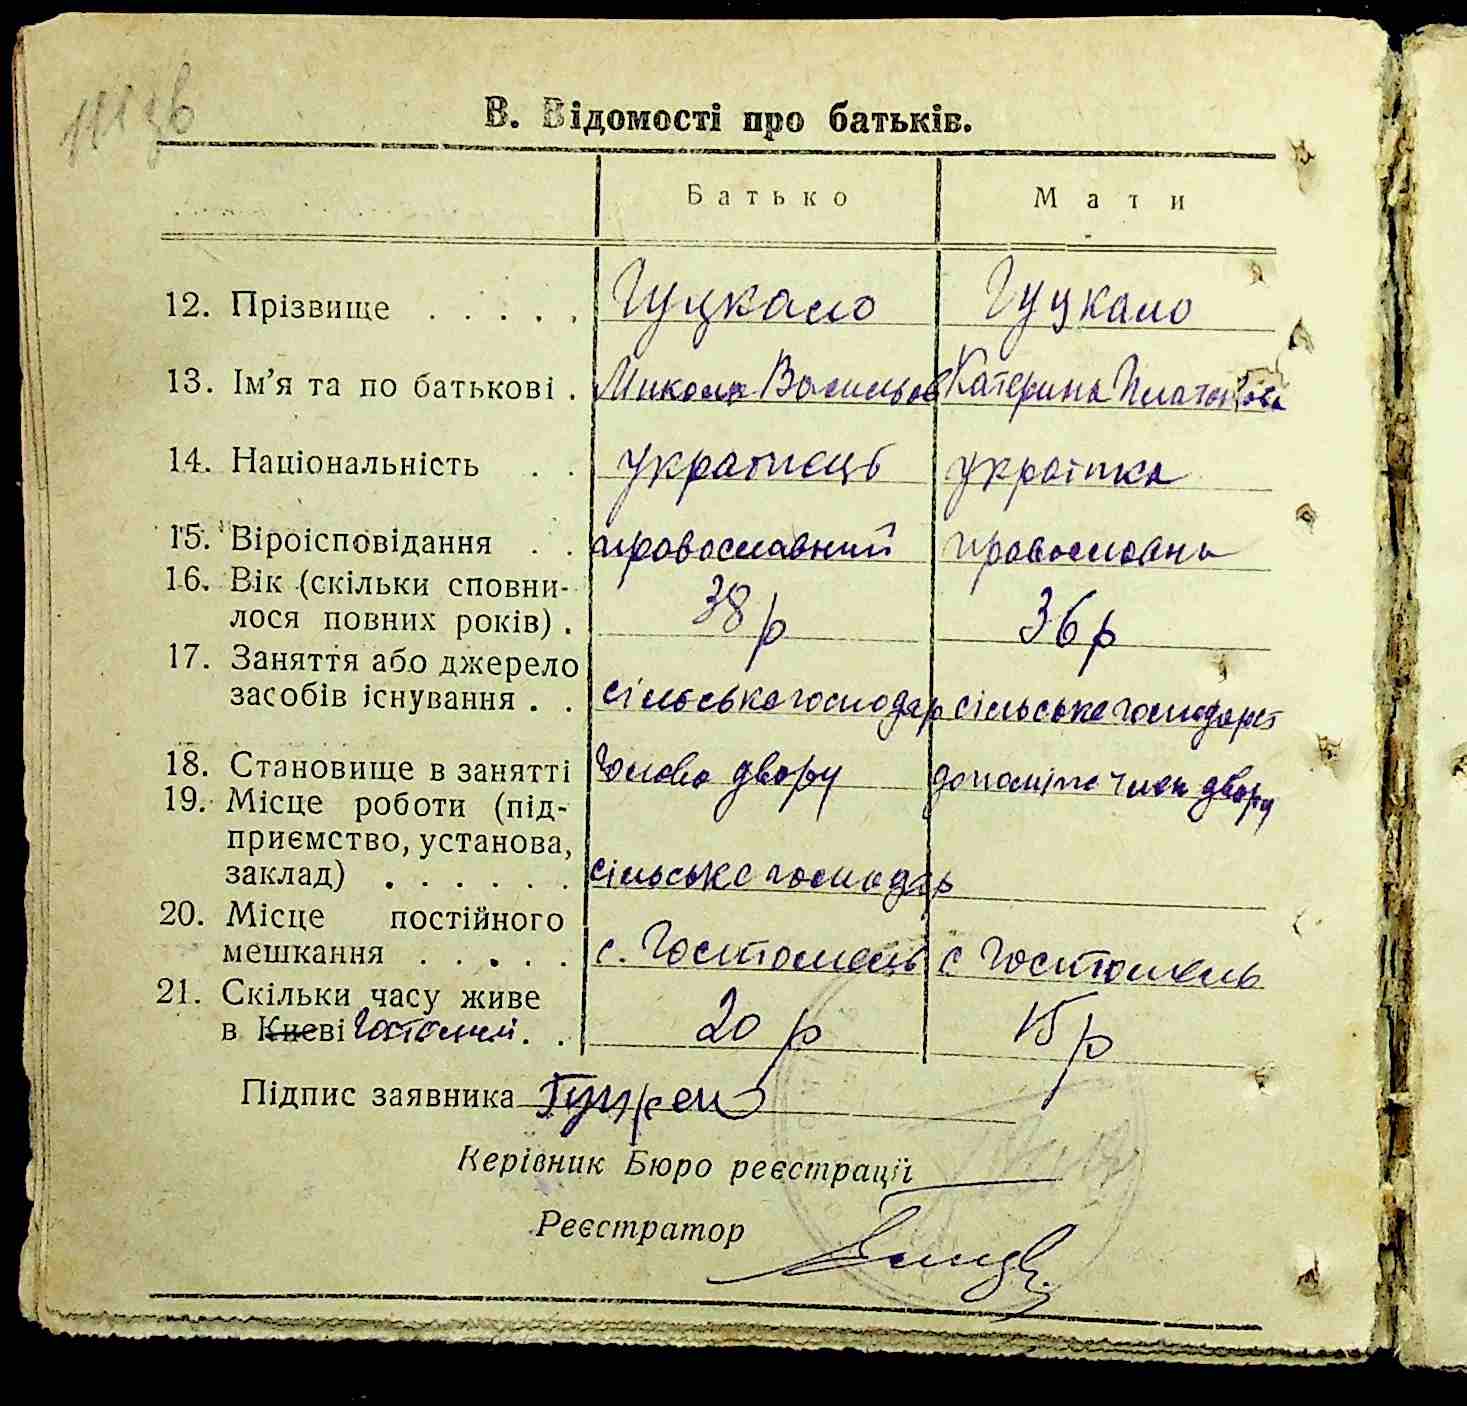 В. Відомості про батьків.
Батько Мати
12. Прізвище . . . . . Гуцкало Гуцкало
13. Ім’я та по батькові . Микола Васильов Катерина Платонова
14. Національність . . українець українка
15. Віроісповідання . . православний православна
16. Вік (скільки сповни-
лося повних років) . 38 р 36 р
17. Заняття або джерело
засобів існування . . сільське господар сільське господарст
18. Становище в занятті голова двору допоміже член двору
19. Місце роботи (під-
приємство, установа,
заклад) . . . . . . сільське господарь
20. Місце постійного
мешкання . . . . . с. Гостомель с Гостомель
21. Скільки часу живе
в Києві Гостомелі . . 20 р 15 р
Підпис заявника
Керівник Бюро реєстрації
Реєстратор